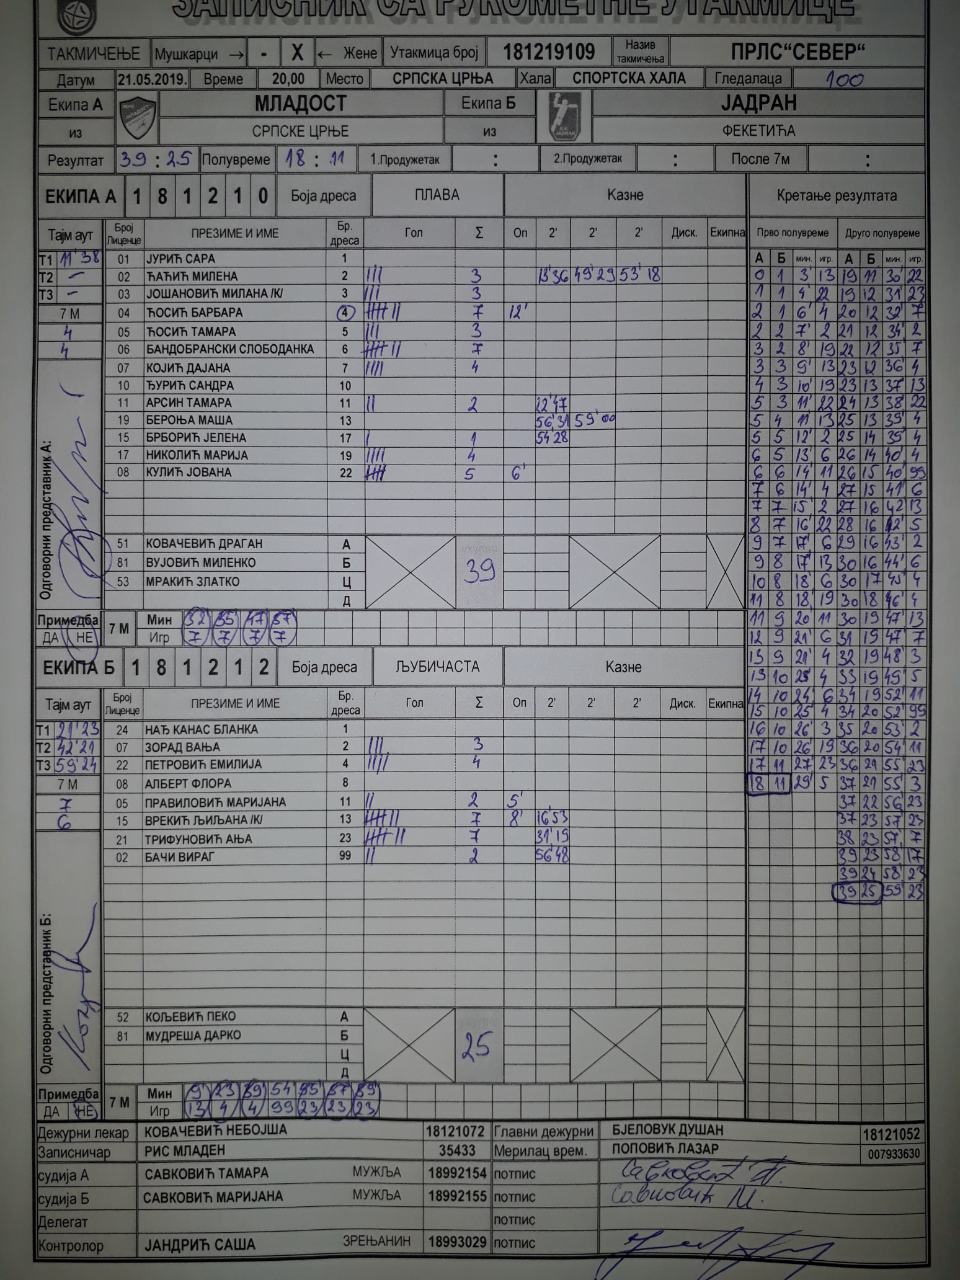 ЗАПИСНИК СА РУКОМЕТНЕ УТАКМИЦЕ
ТАКМИЧЕЊЕ Мушкарци → - X ← Жене Утакмица број 181219109 Назив такмичења ПРЛС“СЕВЕР“
Датум 21.05.2019. Време 20,00 Место СРПСКА ЦРЊА Хала СПОРТСКА ХАЛА Гледалаца 100
Екипа А МЛАДОСТ Екипа Б ЈАДРАН
из СРПСКЕ ЦРЊЕ из ФЕКЕТИЋА
Резултат 39 : 25 Полувреме 18 : 11 1.Продужетак : 2.Продужетак : После 7м :
ЕКИПА А 1 8 1 2 1 0 Боја дреса ПЛАВА Казне Кретање резултата
Тајм аут Број Лиценце ПРЕЗИМЕ И ИМЕ Бр. дреса Гол Σ Оп 2' 2' 2' Диск. Екипна Прво полувреме Друго полувреме
А Б мин. игр. А Б мин. игр.
Т1 11'38 01 ЈУРИЋ САРА 1
Т2 - 02 ЋАЋИЋ МИЛЕНА 2 III 3 13'36 49'29 53'18
Т3 - 03 ЈОШАНОВИЋ МИЛАНА /К/ 3 III 3
7 М 04 ЋОСИЋ БАРБАРА 4 IIIII II 7 12'
4 05 ЋОСИЋ ТАМАРА 5 III 3
4 06 БАНДОБРАНСКИ СЛОБОДАНКА 6 IIIII II 7
07 КОЈИЋ ДАЈАНА 7 IIII 4
10 ЂУРИЋ САНДРА 10
11 АРСИН ТАМАРА 11 II 2 22'47
19 БЕРОЊА МАША 13 56'31 59'00
15 БРБОРИЋ ЈЕЛЕНА 17 I 1 54'28
17 НИКОЛИЋ МАРИЈА 19 IIII 4
08 КУЛИЋ ЈОВАНА 22 IIIII 5 6'
Одговорни представник А:
51 КОВАЧЕВИЋ ДРАГАН А
81 ВУЈОВИЋ МИЛЕНКО Б 39
53 МРАКИЋ ЗЛАТКО Ц
Д
Примедба 7 М Мин 32 35 47 57
ДА НЕ Игр 7 7 7 7
0 1 3' 13 19 11 30' 22
1 1 4' 22 19 12 31' 23
2 1 6' 4 20 12 32' 7
2 2 7' 2 21 12 34' 2
3 2 8' 19 22 12 35' 7
3 3 9' 13 23 12 36' 4
4 3 10' 19 23 13 37' 13
5 3 11' 22 24 13 38' 22
5 4 11' 13 25 13 39' 4
5 5 12' 2 25 14 39' 4
6 5 13' 6 26 14 40' 4
6 6 14' 11 26 15 40' 99
7 6 14' 4 27 15 41' 6
7 7 15' 2 27 16 42' 13
8 7 16' 22 28 16 42' 5
9 7 17' 6 29 16 43' 2
9 8 17' 13 30 16 44' 6
10 8 18' 6 30 17 45' 4
11 8 18' 19 30 18 46' 4
11 9 20' 11 30 19 47' 13
12 9 21' 6 31 19 47' 7
13 9 21' 4 32 19 48' 3
13 10 4 33 19 5
14 10 24' 6 34 19 52' 11
15 10 25' 4 34 20 52' 99
16 10 26' 3 35 20 53' 2
17 10 26' 19 36 20 54' 11
17 11 27' 23 36 21 55' 23
18 11 29' 5 37 21 55' 3
37 22 56' 23
37 23 57' 23
38 23 57' 7
39 23 58' 17
39 24 58' 23
39 25 59' 23
ЕКИПА Б 1 8 1 2 1 2 Боја дреса ЉУБИЧАСТА Казне
Тајм аут Број Лиценце ПРЕЗИМЕ И ИМЕ Бр. дреса Гол Σ Оп 2' 2' 2' Диск. Екипна
Т1 21'23 24 НАЂ КАНАС БЛАНКА 1
Т2 42'21 07 ЗОРАД ВАЊА 2 III 3
Т3 59'24 22 ПЕТРОВИЋ ЕМИЛИЈА 4 IIII 4
7 М 08 АЛБЕРТ ФЛОРА 8
7 05 ПРАВИЛОВИЋ МАРИЈАНА 11 II 2 5'
6 15 ВРЕКИЋ ЉИЉАНА /К/ 13 IIIII II 7 8' 16'53
21 ТРИФУНОВИЋ АЊА 23 IIIII II 7 31'19
02 БАЧИ ВИРАГ 99 II 2 56'48
Одговорни представник Б:
52 КОЉЕВИЋ ПЕКО А
81 МУДРЕША ДАРКО Б 25
Ц
Д
Примедба 7 М Мин 9' 23 39 54 55 57 59
ДА НЕ Игр 13 4 4 99 23 23 23
Дежурни лекар КОВАЧЕВИЋ НЕБОЈША 18121072 Главни дежурни БЈЕЛОВУК ДУШАН 18121052
Записничар РИС МЛАДЕН 35433 Мерилац врем. ПОПОВИЋ ЛАЗАР 007933630
судија А САВКОВИЋ ТАМАРА МУЖЉА 18992154 потпис Савковић Т.
судија Б САВКОВИЋ МАРИЈАНА МУЖЉА 18992155 потпис Савковић М.
Делегат потпис
Контролор ЈАНДРИЋ САША ЗРЕЊАНИН 18993029 потпис